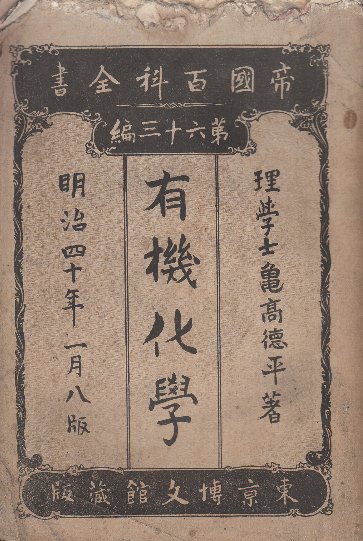 帝國百科全書
第六十三編
理學士亀高德平著
有機化學
明治四十年一月八版
東京博文館藏版